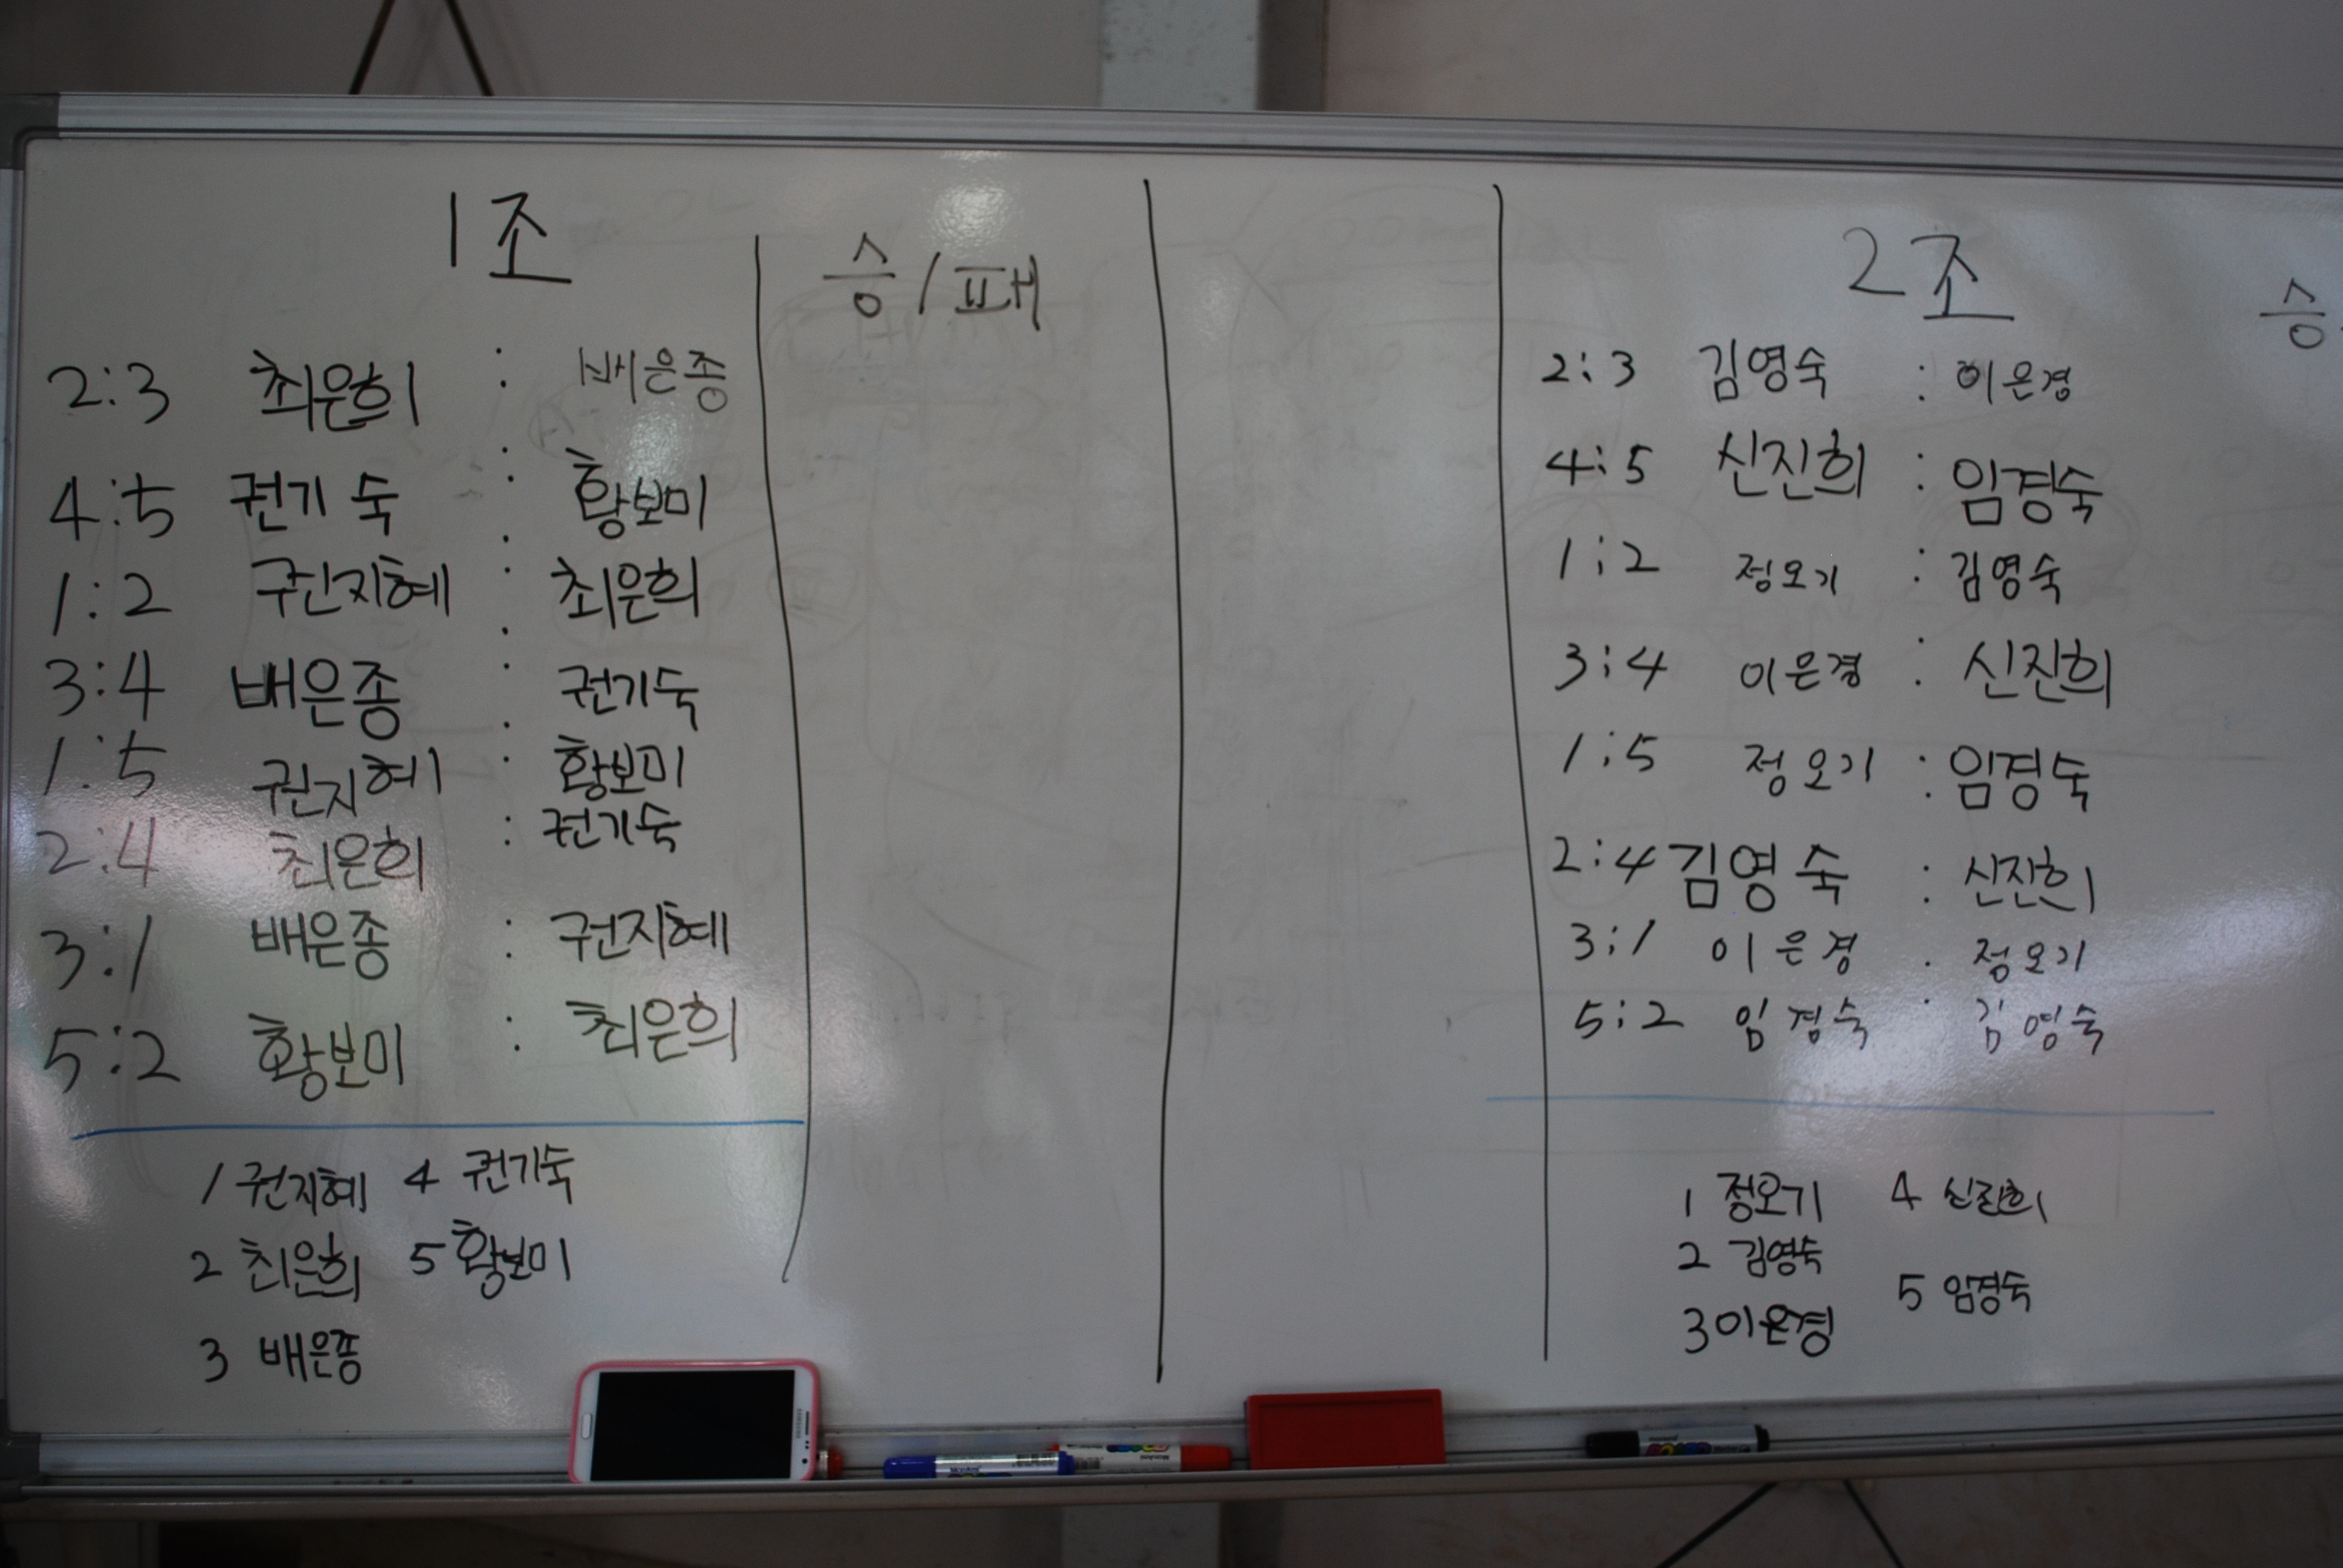 1조
승/패
2:3 최은희 : 배은종
4:5 권기숙 : 황보미
1:2 권지혜 : 최은희
3:4 배은종 : 권기숙
1:5 권지혜 : 황보미
2:4 최은희 : 권기숙
3:1 배은종 : 권지혜
5:2 황보미 : 최은희
1 권지혜 4 권기숙
2 최은희 5 황보미
3 배은종
2조
승
2:3 김영숙 : 이은경
4:5 신진희 : 임경숙
1:2 정오기 : 김영숙
3:4 이은경 : 신진희
1:5 정오기 : 임경숙
2:4 김영숙 : 신진희
3:1 이은경 : 정오기
5:2 임경숙 : 김영숙
1 정오기 4 신진희
2 김영숙
5 임경숙
3 이은경
SAMSUNG